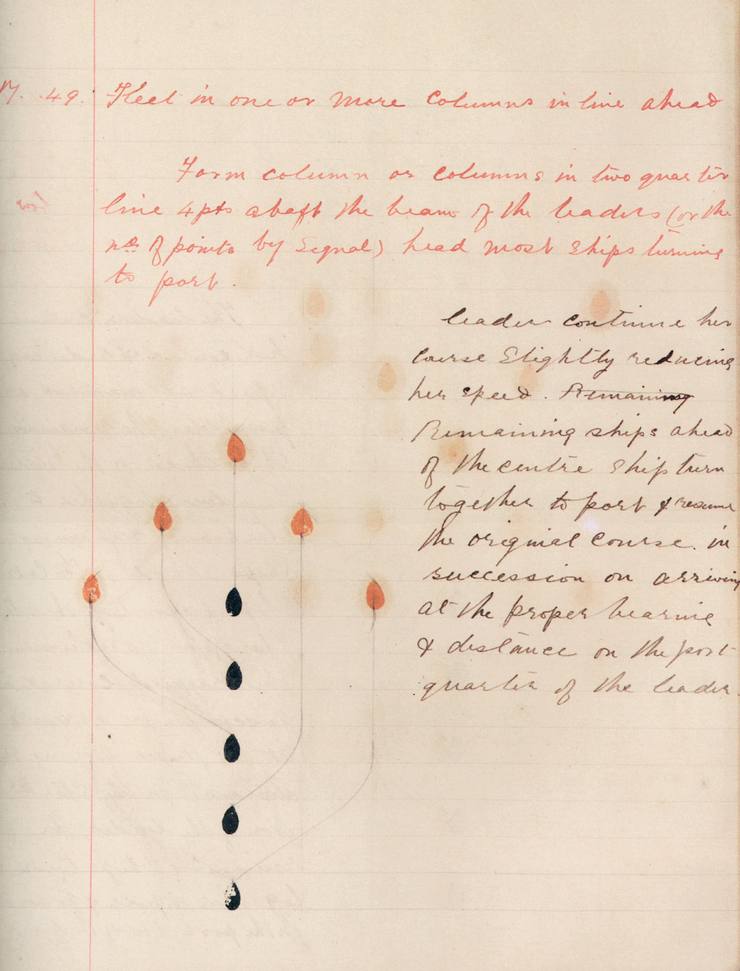 49. Fleet in one or more columns in line ahead
Form column or columns in two quarter
line 4pts abaft the beam of the leaders (or the
no of points by Signal) head most ships turning
to port.
leader continue her
course Slightly reducing
her speed. Remaining
Remaining ships ahead
of the centre ship turn
together to port & resume
the original course. in
succession on arriving
at the proper bearing
& distance on the port
quarter of the leader